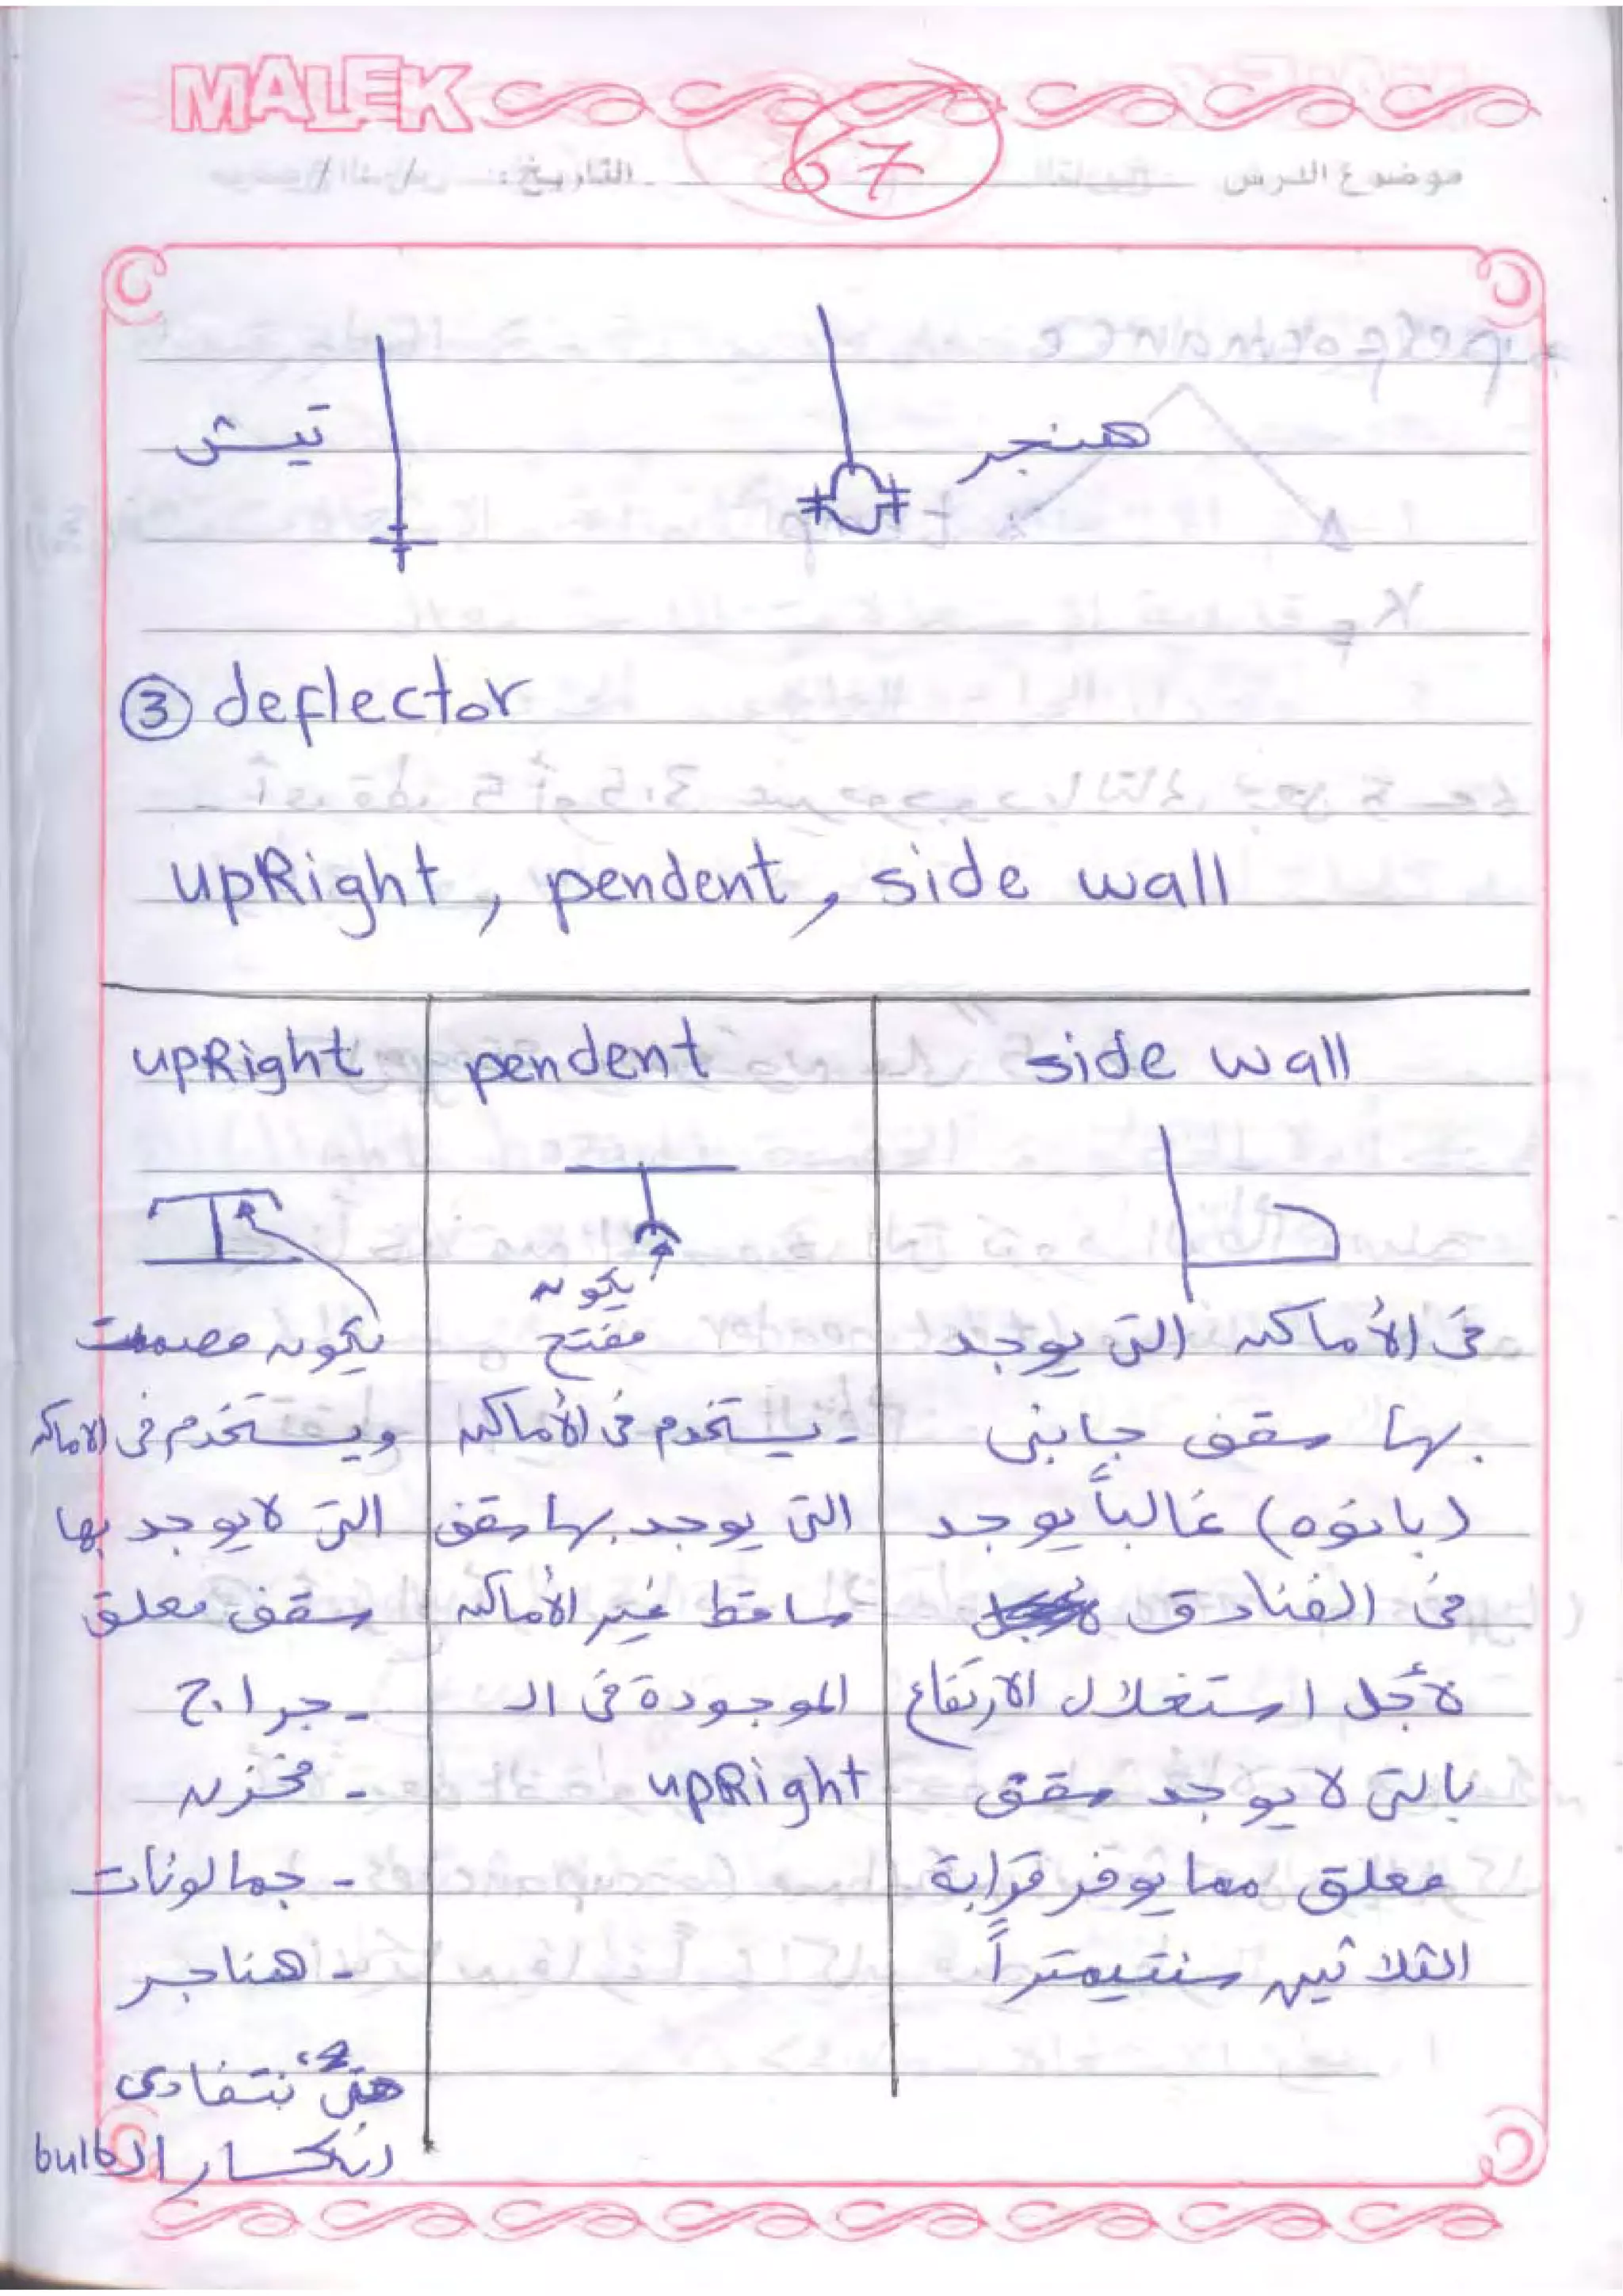 MALEK
67
موضوع الدرس
التاريخ : / /
هنجر
تيش
③ deflector
upRight, pendent, side wall
upRight
يكون مصمت
ويستخدم فى الاماكن
التى لا يوجد بها
سقف معلق
- جراج
- مخزن
- جمالونات
- هناجر
حتى نتفادى
انكسار الـ bulb
pendent
يكون
مفتح
- يستخدم فى الأماكن
التى يوجد بها سقف
ساقط غير الأماكن
الموجودة فى الـ
upRight
side wall
فى الأماكن التى يوجد
بها سقف جابنى
(بانوه) غالباً يوجد
فى الفنادق
لأجل استغلال الارتفاع
بالتى لا يوجد سقف
معلق مما يوفر قرابة
الثلاثين سنتيمتراً